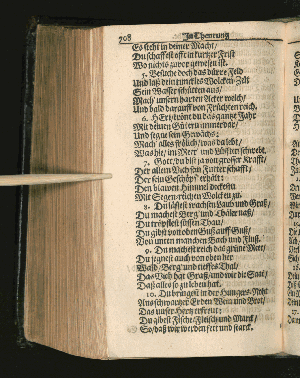 708 In Theurung
Es steht in deiner Macht/
Du schaffst offt in kurtzer Frist
Wo nichts zuvor gewesen ist.
5. Besuche doch das dürre Feld
Und laß dein Wolcken-Zelt
Sein Wasser schütten aus/
Mach unsern harten Acker weich/
Und bald darauff von Früchten reich.
6. HErr kröne du das gantze Jahr
Mit deinen Gütern immerdar/
Und segne sein Gewächs:
Mach alles frölich/ was da lebt/
Was hie/ im Meer und Lüfften schwebt.
7. Gott/ du bist ja von grosser Krafft/
Der allem Vieh sein Futter schafft/
Der sein Geschöpf erhält:
Den blauen Himmel deckstu
Mit Segen-reichen Wolcken zu.
8. Du läßest wachsen Laub und Graß/
Du machest Berg und Thäler naß/
Du tröpflest süssen Thau/
Du gibst von oben Guß auff Guß/
Von unten manchen Bach und Fluß.
9. Du machest reich das grüne Meer/
Du segnest auch von oben her
Wald/ Berg und tieffes Thal/
Das Vieh hat Graß/ und wir die Saat/
Daß alles so zu leben hat.
10. Du bringest in der Hungers-Noht
Aus schwartzer Erden Wein und Brot/
Das unser Hertz erfreut:
Du gibest Fische/ Fleisch und Marck/
So/ daß wir werden fett und starck.